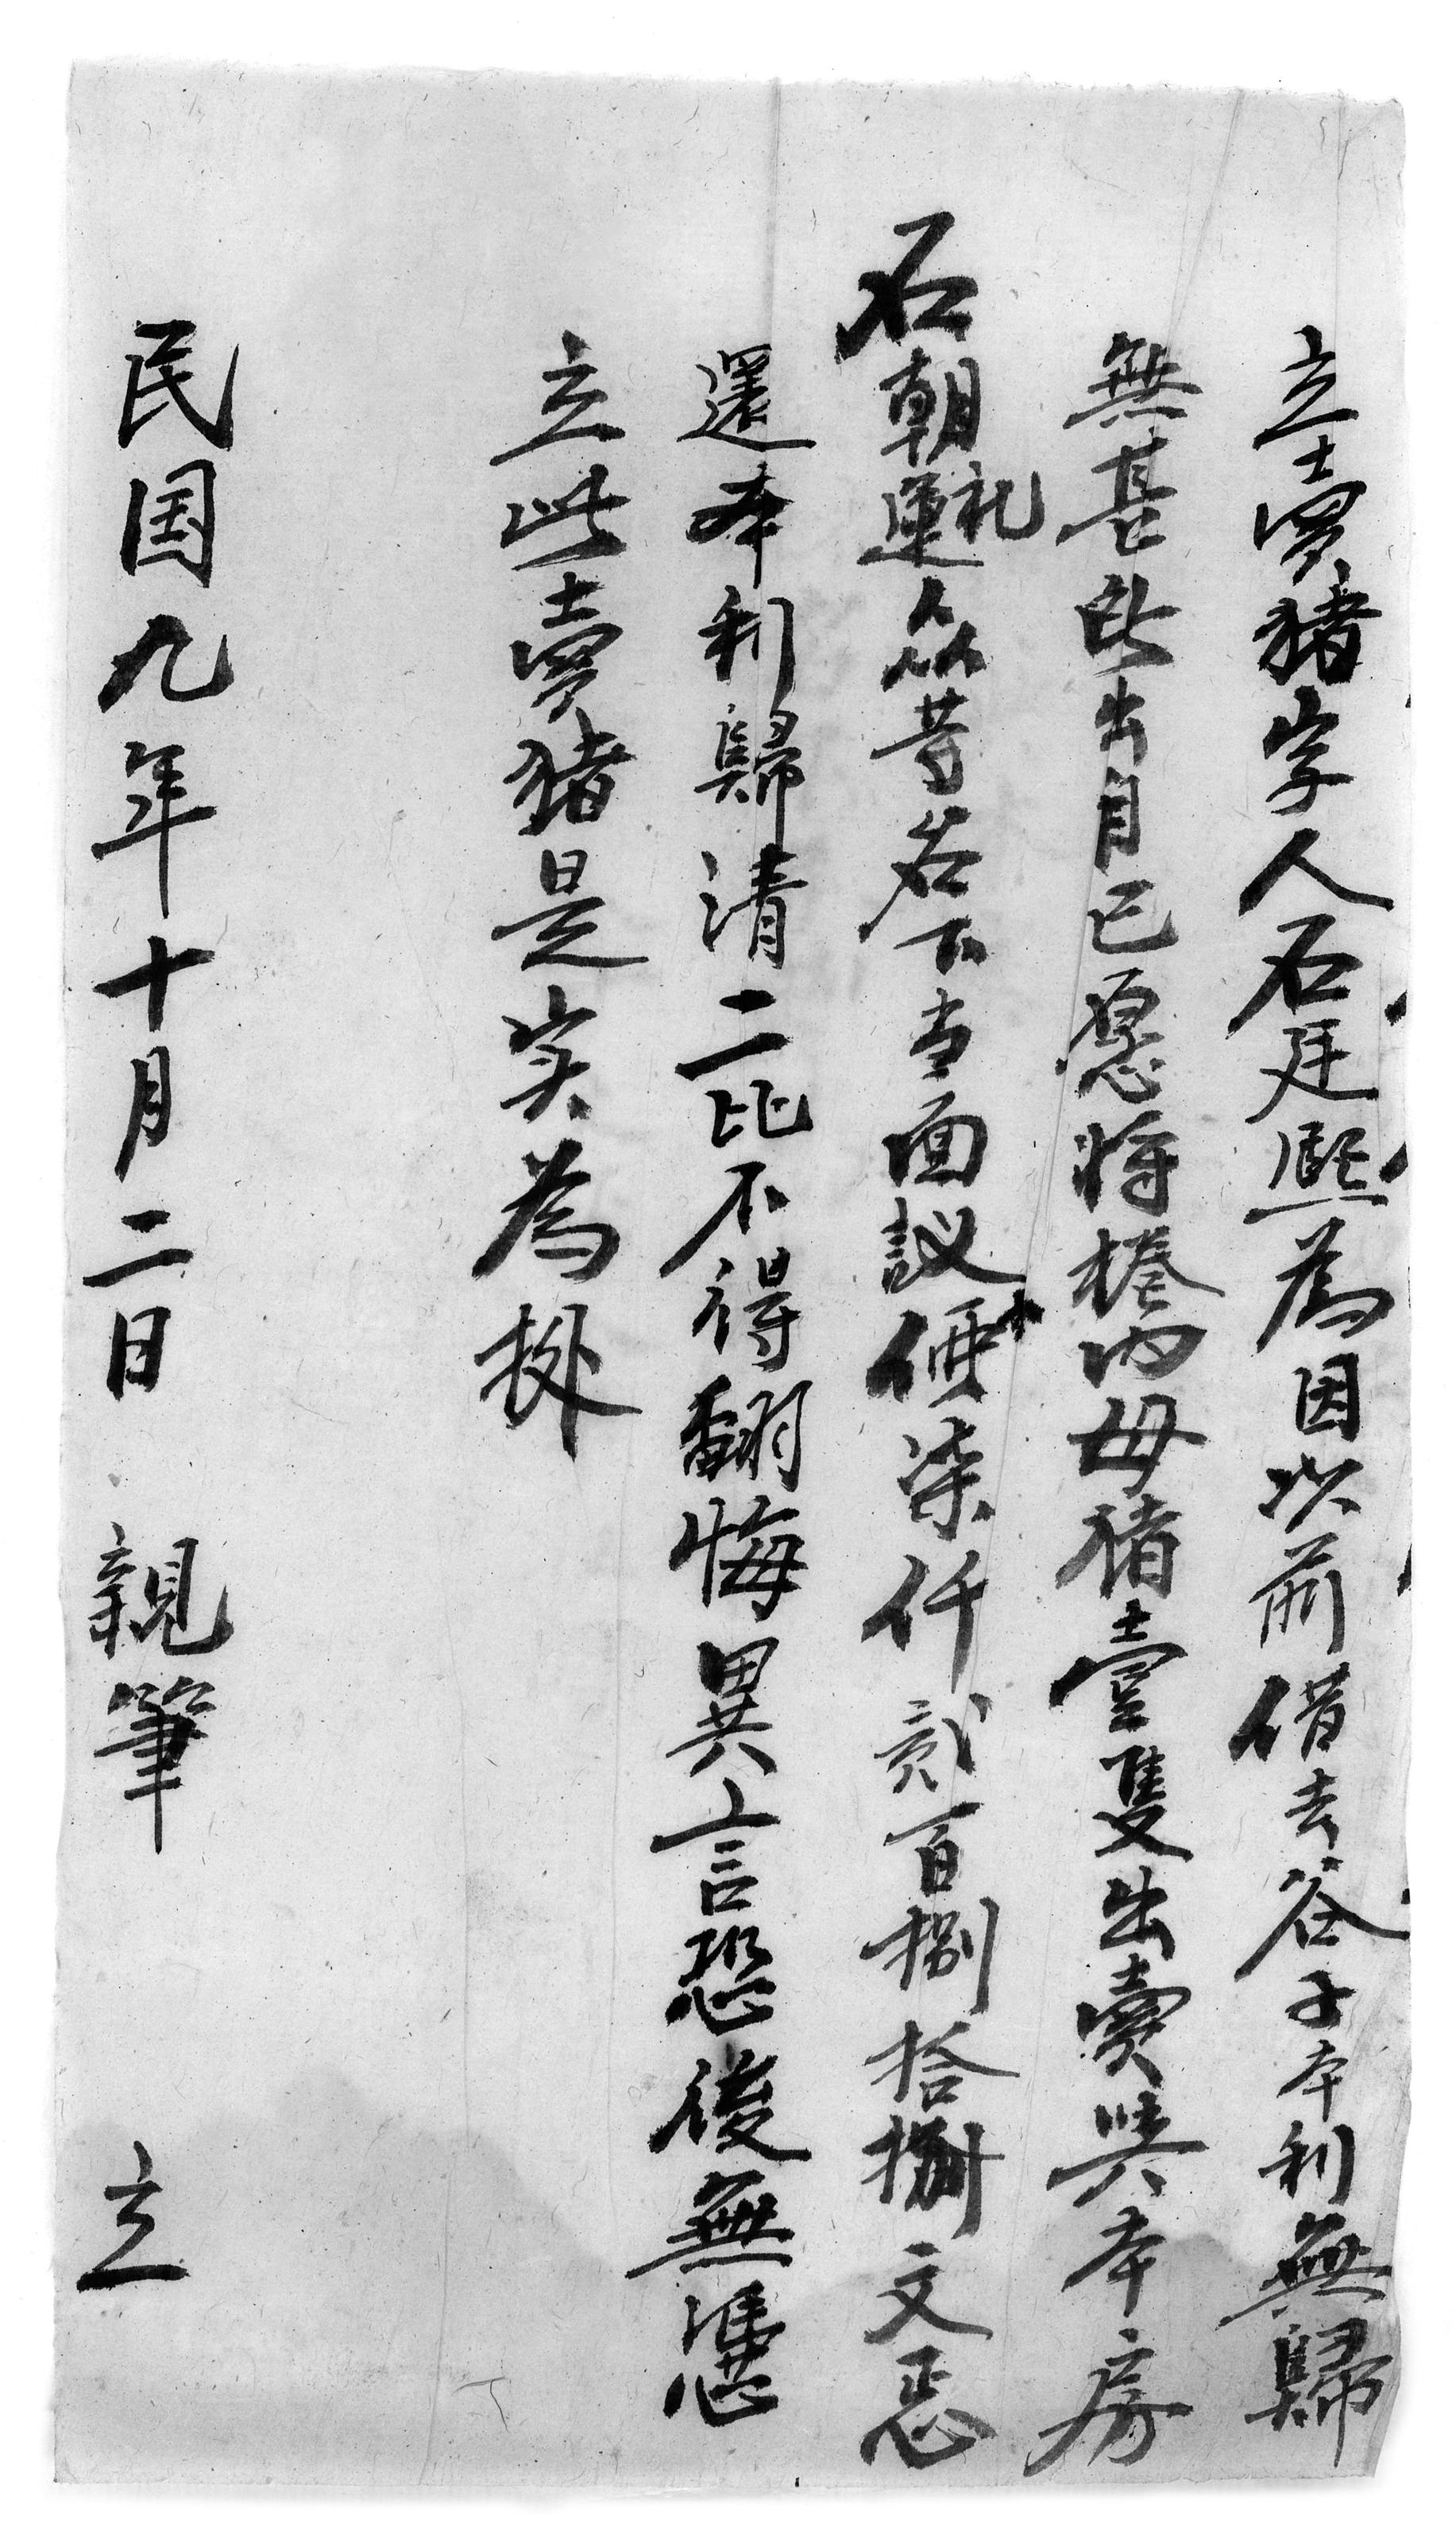 立賣猪字人石廷熙為因以前借去谷子本利無歸
無甚此出自己愿將棬内母猪壹隻出賣與本房
石朝運礼众等名下当面議価柒仟貳百捌拾捌文
還本利歸清二比不得翻悔異言恐後無憑
立此賣猪是实為挔
民国九年十月二日 親筆 立